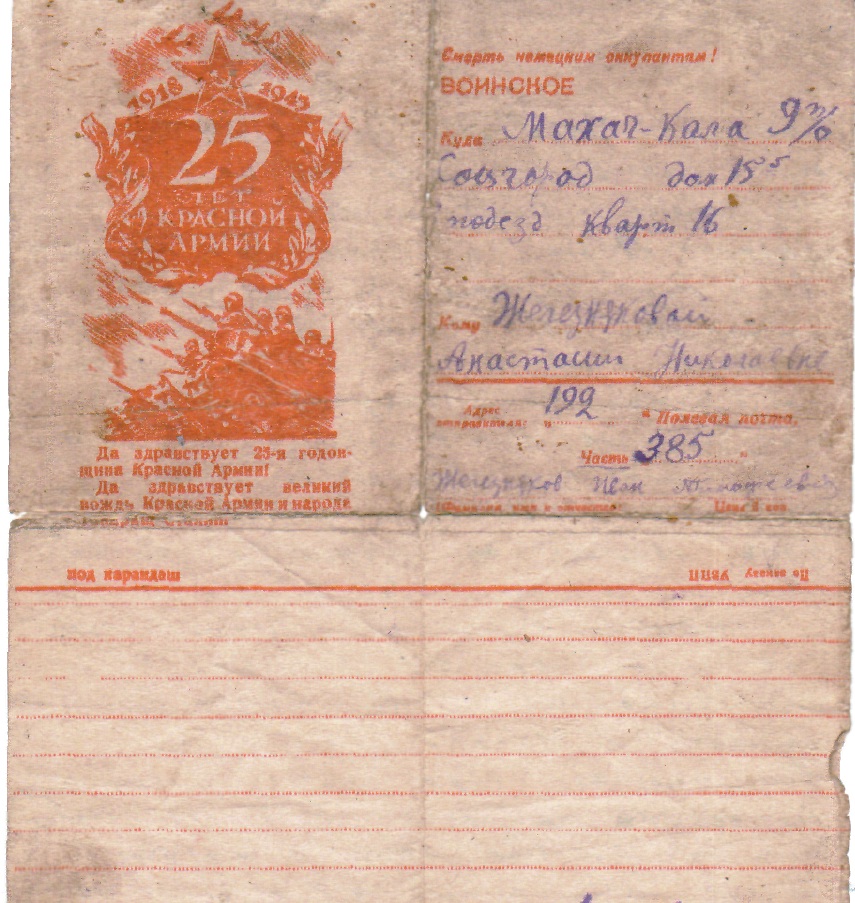 1918 1943
25
ЛЕТ
КРАСНОЙ
АРМИИ
Да здравствует 25-я годов-
щина Красной Армии!
Да здравствует великий
вождь Красной Армии и народа
товарищ Сталин!
Смерть немецким оккупантам!
ВОИНСКОЕ
Куда Махач-Кала 9 п/о
Соцгород дом 15
подезд кварт 16
Кому Железняковой
Анастасии Николаевне
Адрес
отправителя: „ 192 “ Полевая почта,
Часть 385 “
Железняков Иван
(Фамилия, имя и отчество) Цена
под карандаш
По заказу УВПП